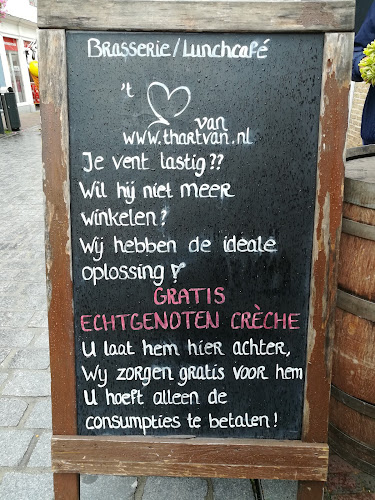 Brasserie/Lunchcafé
't
van
www.thartvan.nl
Je vent lastig??
Wil hij niet meer
winkelen?
Wij hebben de ideale
oplossing!
GRATIS
ECHTGENOTEN CRÈCHE
U laat hem hier achter,
Wij zorgen gratis voor hem
U hoeft alleen de
consumpties te betalen!